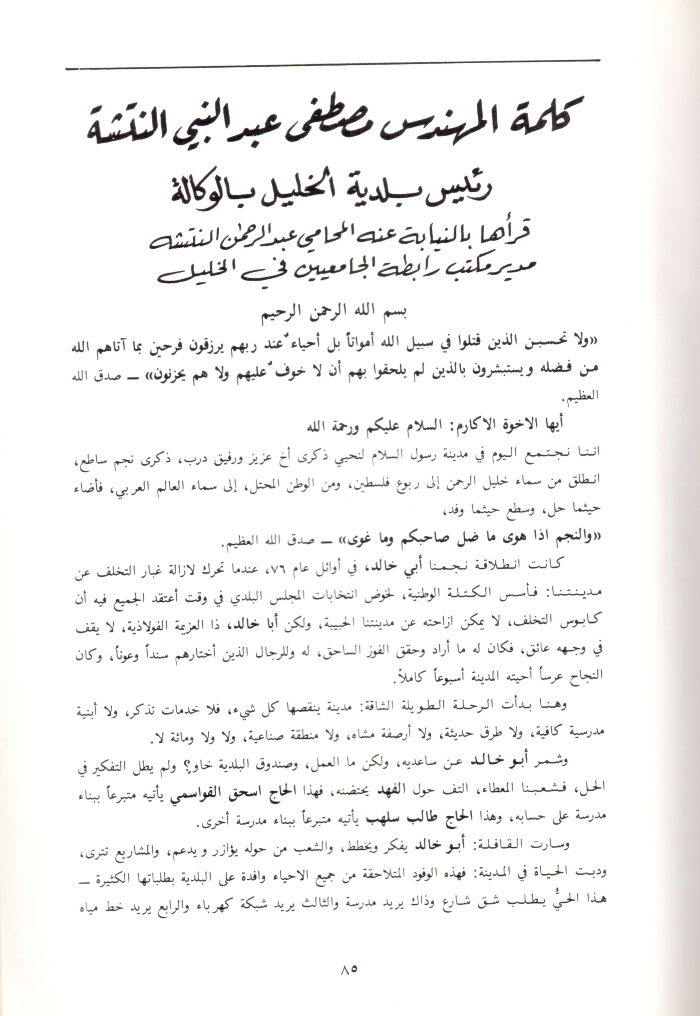 كلمة المهندس مصطفى عبد النبي النتشة
رئيس بلدية الخليل بالوكالة
قرأها بالنيابة عنه المحامي عبد الرحمن النتشه
مدير مكتب رابطة الجامعيين في الخليل
بسم الله الرحمن الرحيم
«ولا تحسبن الذين قتلوا في سبيل الله أمواتاً بل أحياء ٌعند ربهم يرزقون فرحين بما آتاهم الله
من فضله ويستبشرون بالذين لم يلحقوا بهم أن لا خوف ٌعليهم ولا هم يحزنون» ــ صدق الله
العظيم.
أيها الاخوة الاكارم: السلام عليكم ورحمة الله
اننا نجتمع اليوم في مدينة رسول السلام لنحيي ذكرى أخ عزيز ورفيق درب، ذكرى نجم ساطع،
انطلق من سماء خليل الرحمن إلى ربوع فلسطين، ومن الوطن المحتل، إلى سماء العالم العربي، فأضاء
حيثما حل، وسطع حيثما وفد،
«والنجم اذا هوى ما ضل صاحبكم وما غوى» ــ صدق الله العظيم.
كانت انطلاقة نجمنا أبي خالد، في أوائل عام ٧٦، عندما تحرك لازالة غبار التخلف عن
مدينتنا: فأسس الكتلة الوطنية، لخوض انتخابات المجلس البلدي في وقت أعتقد الجميع فيه أن
كابوس التخلف، لا يمكن ازاحته عن مدينتنا الحبيبة، ولكن أبا خالد، ذا العزيمة الفولاذية، لا يقف
في وجهه عائق، فكان له ما أراد وحقق الفوز الساحق، له وللرجال الذين أختارهم سنداً وعوناً، وكان
النجاح عرساً أحيته المدينة أسبوعاً كاملاً.
وهنا بدأت الرحلة الطويلة الشاقة: مدينة ينقصها كل شيء، فلا خدمات تذكر، ولا أبنية
مدرسية كافية، ولا طرق حديثة، ولا أرصفة مشاه، ولا منطقة صناعية، ولا ولا ومائة لا.
وشمر أبو خالد عن ساعديه، ولكن ما العمل، وصندوق البلدية خاو؟ ولم يطل التفكير في
الحل، فشعبنا المعطاء، التف حول الفهد يحتضنه، فهذا الحاج اسحق القواسمي يأتيه متبرعاً ببناء
مدرسة على حسابه، وهذا الحاج طالب سلهب يأتيه متبرعاً ببناء مدرسة أخرى.
وسارت القافلة: أبو خالد يفكر ويخطط، والشعب من حوله يؤازر ويدعم، والمشاريع تترى،
ودبت الحياة في المدينة: فهذه الوفود المتلاحقة من جميع الاحياء وافدة على البلدية بطلباتها الكثيرة ــ
هذا الحيُّ يطلب شق شارع وذاك يريد مدرسة والثالث يريد شبكة كهرباء والرابع يريد خط مياه
٨٥